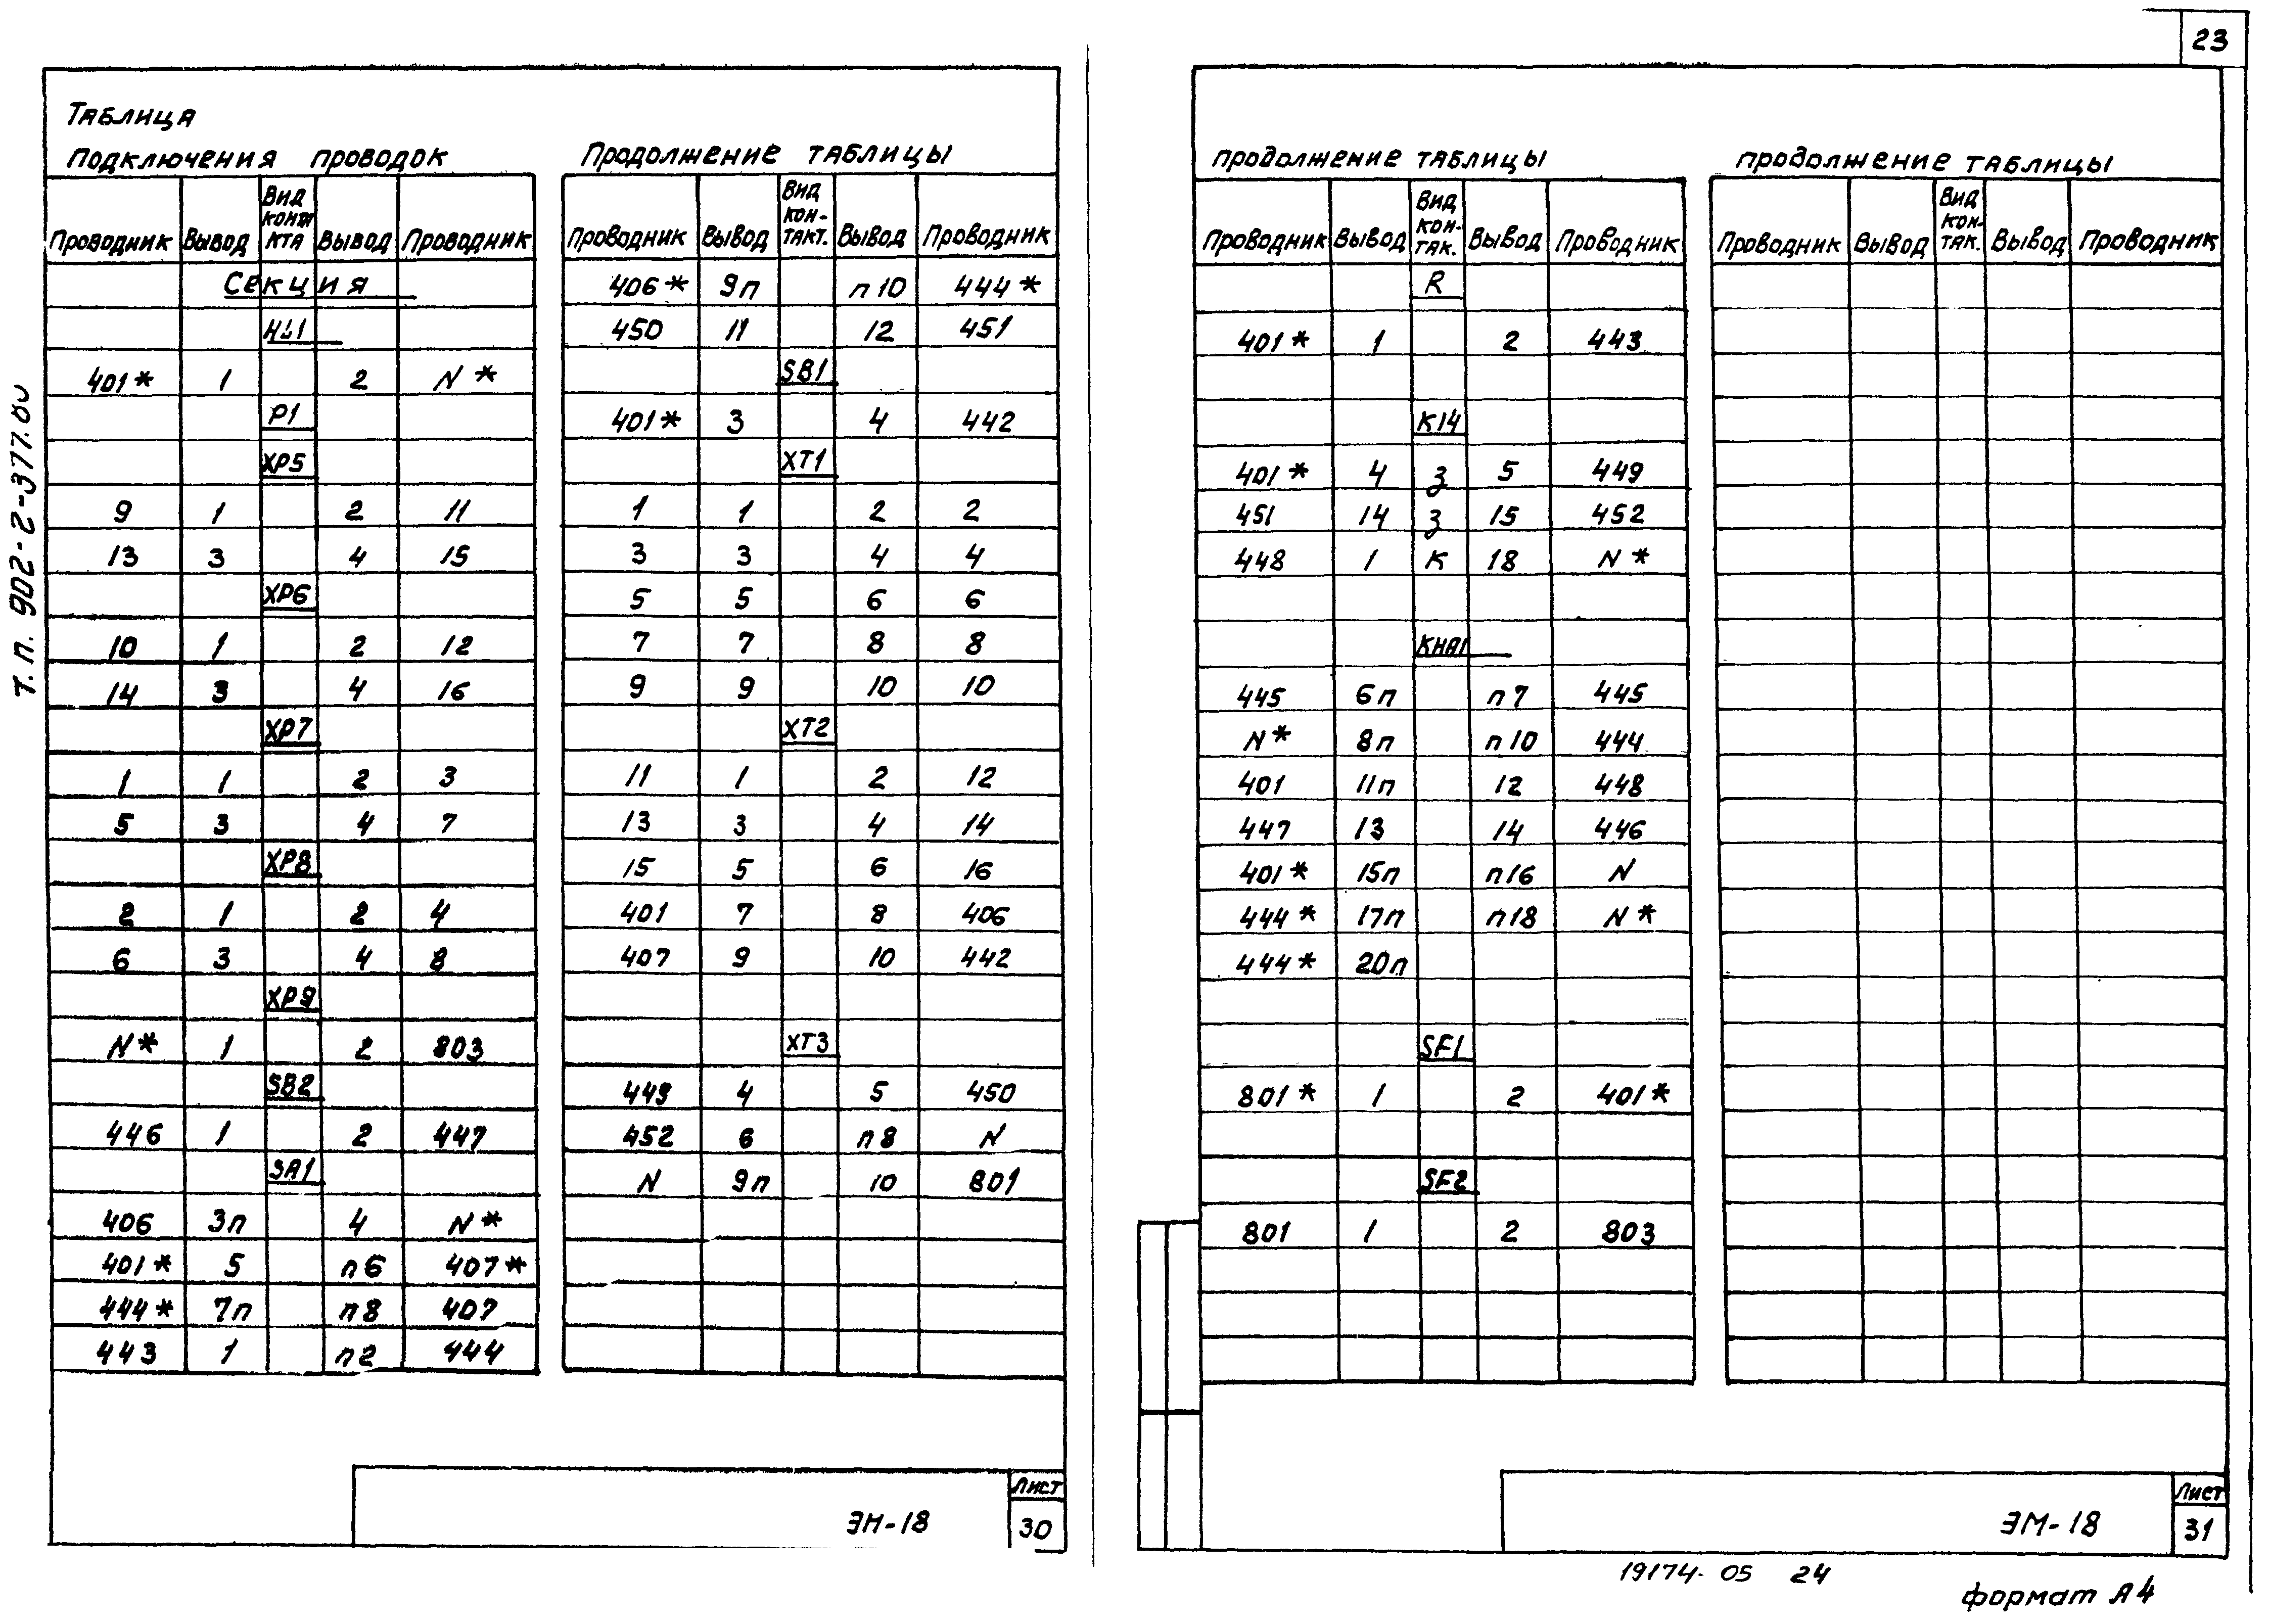 23
т. п. 902-2-377.
Таблица
Подключения проводок
Проводник Вывод Вид конта кта Вывод Проводник
Секция
HL1
401* 1 2 N*
P1
XP5
9 1 2 11
13 3 4 15
XP6
10 1 2 12
14 3 4 16
XP7
1 1 2 3
5 3 4 7
XP8
2 1 2 4
6 3 4 8
XP9
N* 1 2 803
SB2
446 1 2 447
SA1
406 3п 4 N*
401* 5 п6 407*
444* 7п п8 407
443 1 п2 444
Продолжение таблицы
Проводник Вывод Вид кон- такт. Вывод Проводник
406* 9п п10 444*
450 11 12 451
SB1
401* 3 4 442
XT1
1 1 2 2
3 3 4 4
5 5 6 6
7 7 8 8
9 9 10 10
XT2
11 1 2 12
13 3 4 14
15 5 6 16
401 7 8 406
407 9 10 442
XT3
449 4 5 450
452 6 п8 N
N 9п 10 801
ЭМ-18
Лист
30
продолжение таблицы
Проводник Вывод Вид кон- так. Вывод Проводник
R
401* 1 2 443
K14
401* 4 з 5 449
451 14 з 15 452
448 1 к 18 N*
KHA1
445 6п п7 445
N* 8п п10 444
401 11п 12 448
447 13 14 446
401* 15п п16 N
444* 17п п18 N*
444* 20п
SF1
801* 1 2 401*
SF2
801 1 2 803
продолжение таблицы
Проводник Вывод Вид кон- так. Вывод Проводник
ЭМ-18
Лист
31
19174-05 24
формат А4